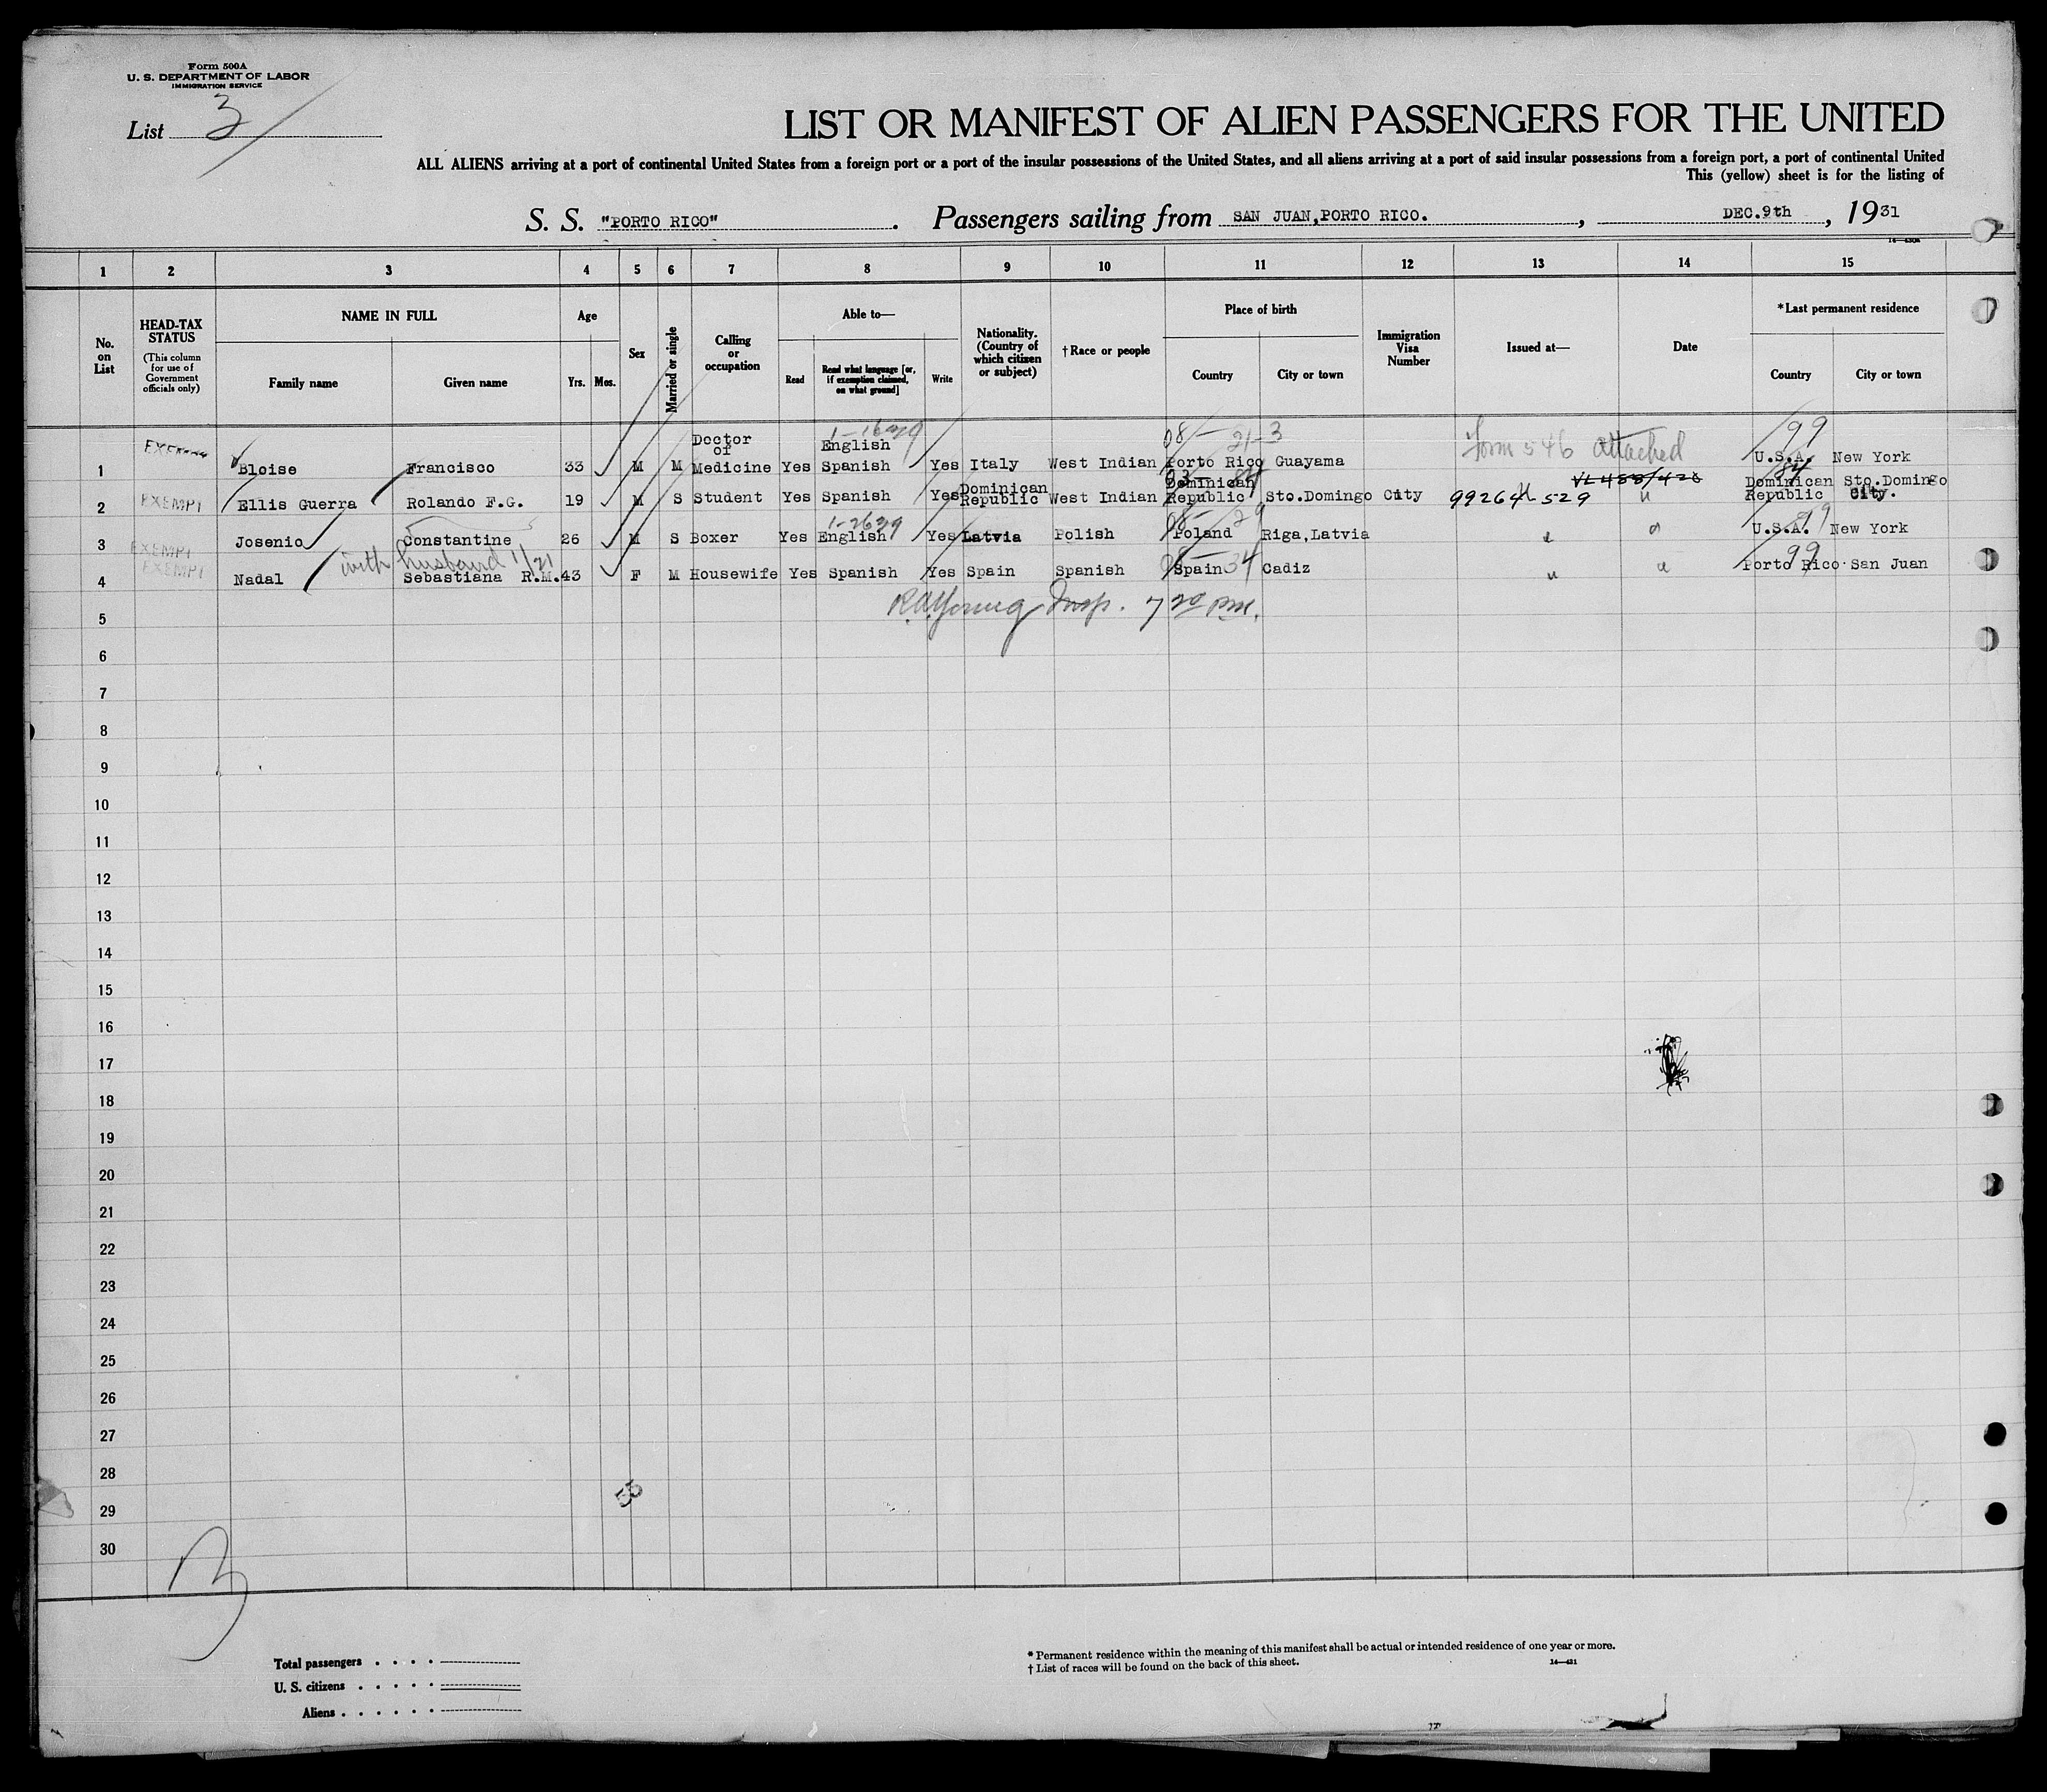 Form 500A
U. S. DEPARTMENT OF LABOR
IMMIGRATION SERVICE
List 3
LIST OR MANIFEST OF ALIEN PASSENGERS FOR THE UNITED
ALL ALIENS arriving at a port of continental United States from a foreign port or a port of the insular possessions of the United States, and all aliens arriving at a port of said insular possessions from a foreign port, a port of continental United
This (yellow) sheet is for the listing of
S. S. "PORTO RICO". Passengers sailing from SAN JUAN, PORTO RICO., DEC.9th, 1931
1 2 3 4 5 6 7 8 9 10 11 12 13 14 15
No. on List
HEAD-TAX STATUS
(This column for use of Government officials only)
NAME IN FULL
Family name Given name
Age
Yrs. Mos.
Sex
Married or single
Calling or occupation
Able to—
Read
Read what language [or, if exemption claimed, on what ground]
Write
Nationality. (Country of which citizen or subject)
†Race or people
Place of birth
Country City or town
Immigration Visa Number
Issued at—
Date
*Last permanent residence
Country City or town
1 Bloise Francisco 33 M M Doctor of Medicine Yes English Spanish Yes Italy West Indian Porto Rico Guayama Form 546 attached U.S.A. New York
99
08— 21-3
2 EXEMPT Ellis Guerra Rolando F.G. 19 M S Student Yes Spanish Yes Dominican Republic West Indian Dominican Republic Sto.Domingo City 99264-529 Dominican Republic Sto.Domingo City.
84
3 EXEMPT Josenio Constantine 26 M S Boxer Yes English Yes Latvia Polish Poland Riga,Latvia U.S.A. New York
with husband 1/21
4 EXEMPT Nadal Sebastiana R.M. 43 F M Housewife Yes Spanish Yes Spain Spanish Spain Cadiz Porto Rico San Juan
99
34
5 R.A.Young Insp. 7 20 PM.
6
7
8
9
10
11
12
13
14
15
16
17
18
19
20
21
22
23
24
25
26
27
28
29
30
Total passengers
U. S. citizens
Aliens
* Permanent residence within the meaning of this manifest shall be actual or intended residence of one year or more.
† List of races will be found on the back of this sheet.
14—431